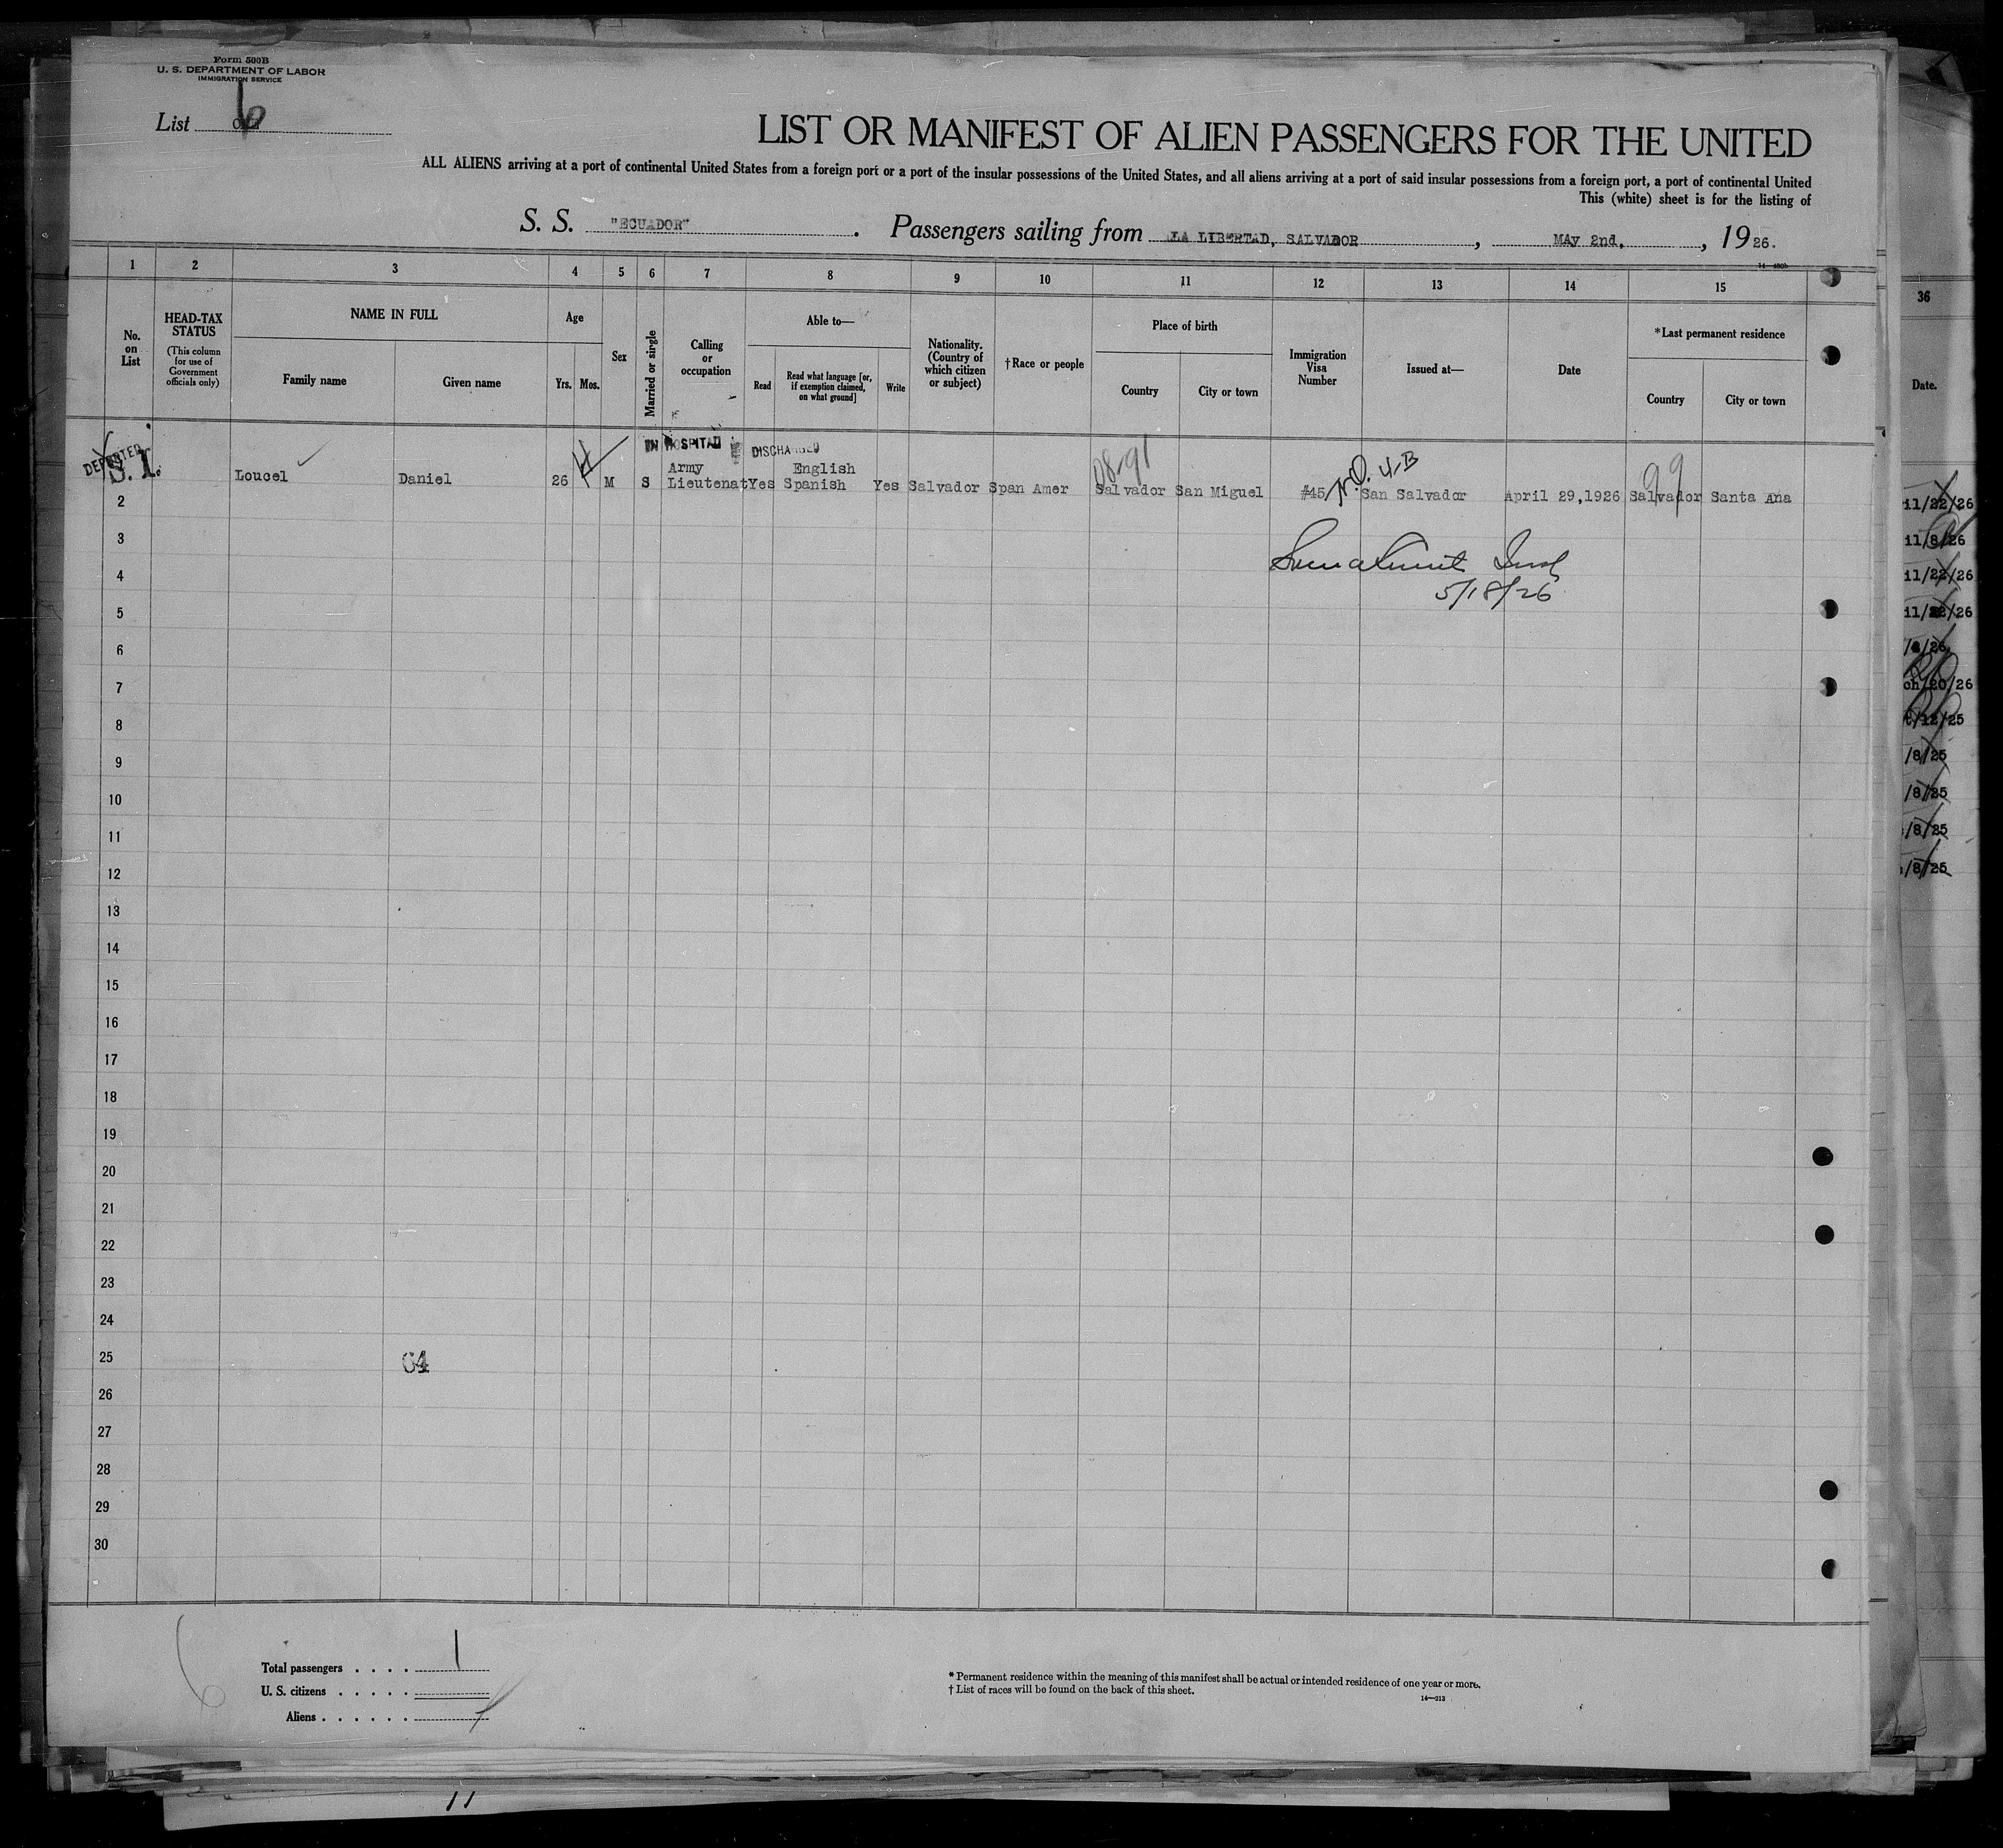 Form 500B
U. S. DEPARTMENT OF LABOR
IMMIGRATION SERVICE
List 6
LIST OR MANIFEST OF ALIEN PASSENGERS FOR THE UNITED
ALL ALIENS arriving at a port of continental United States from a foreign port or a port of the insular possessions of the United States, and all aliens arriving at a port of said insular possessions from a foreign port, a port of continental United
This (white) sheet is for the listing of
S. S. "ECUADOR". Passengers sailing from LA LIBERTAD, SALVADOR, MAy 2nd, , 1926.
1 2 3 4 5 6 7 8 9 10 11 12 13 14 15
No. on List
HEAD-TAX STATUS
(This column for use of Government officials only)
NAME IN FULL
Family name
Given name
Age
Yrs. Mos.
Sex
Married or single
Calling or occupation
Able to—
Read
Read what language [or, if exemption claimed, on what ground]
Write
Nationality. (Country of which citizen or subject)
†Race or people
Place of birth
Country
City or town
Immigration Visa Number
Issued at—
Date
*Last permanent residence
Country
City or town
36
Date.
DEPORTED
S. I.
IN HOSPITAL DISCHARGED
08-91
4-B
99
Army English
Loucel Daniel 26 M S Lieutenat Yes Spanish Yes Salvador Span Amer Salvador San Miguel #45 San Salvador April 29,1926 Salvador Santa Ana
5/18/26
2
3
4
5
6
7
8
9
10
11
12
13
14
15
16
17
18
19
20
21
22
23
24
25
64
26
27
28
29
30
il/22/26
il/8/26
il/22/26
il/22/26
/8/26
ch/20/26
t/12/25
/8/25
/8/25
/8/25
/8/25
6
Total passengers . . . . 1
U. S. citizens . . . . .
Aliens . . . . . . 1
* Permanent residence within the meaning of this manifest shall be actual or intended residence of one year or more.
† List of races will be found on the back of this sheet.
14—213
11